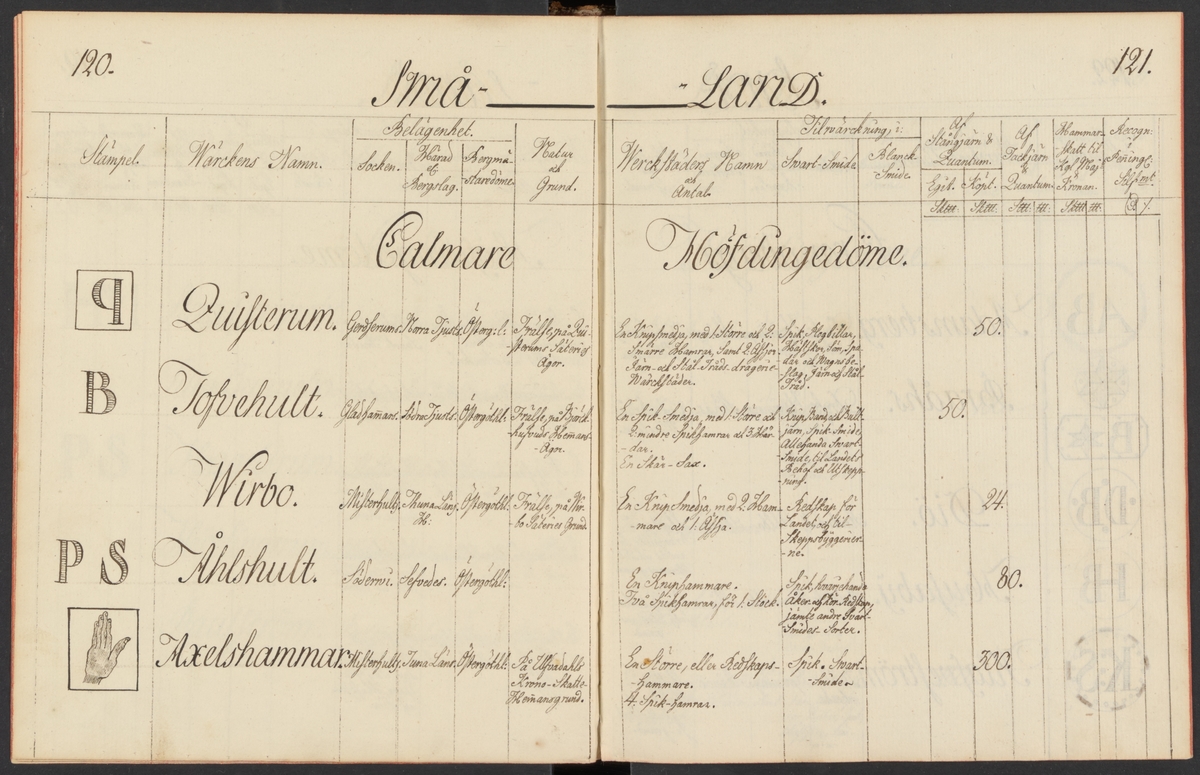 120.
121.
Små-
-Land.
Stämpel.
Wärckens Namn.
Belägenhet.
Socken.
Härad
och
Bergslag.
Bergmä-
staredöme.
Natur
och
Grund.
Werckstäders Namn
och
Antal.
Tilwärckning, i:
Svart-Smide
Blanck
Smide.
Af
Stångjärn &
Quantum.
Eget.
Köpt.
Af
Tackjärn
&
Quantum.
Hammar-
Skatt til
Kgl Maj
Kronan.
Recogn:
i
Peninge.
Slfmt.
Calmare
Höfdingedöme.
q
Quisterum.
Gerdserums.
Norra Tjusts.
Österg:l:
Frälse, på Qui-
sterums Säteries
Ägor.
En Knip Smedja, med 1. Större och 2:
Smärre Hamrar, Samt 2. Ässjor
Järn- och Stål-Tråds-dragerie-
Wärckstäder.
Spik, Plogbillar,
Hästskor, Söm, Spa-
dar och Wagnsbe-
slag, Järn och Stål-
Tråd.
50.
B
Tofvehult.
Gladhamars.
Södra Tjusts.
Östergöthl:
Frälse, på Björk-
hufvuds Hemans-
Ägor.
En Spik-Smedja, med 1. Större och
2. mindre Spikhamrar och 3 Här-
dar.
En Skär-Sax.
Knip Band och Bult-
järn, Spik-Smide,
Allehanda Svart-
Smide, til Landets
Behof och Utskepp-
ning.
50.
Wirbo.
Misterhults
Thuna Läns
H:
Östergöthl:
Frälse, på Wir-
bo Säteries Grund.
En Knip Smedja, med 2. Ham-
mare och 1. Ässja.
Redskap för
Landet, och til
Skeppsbyggerier-
ne.
24.
P S
Åhlshult.
Södervi.
Sefvedes.
Östergöthl:
En Kniphammare.
Två Spikhamrar, för 1. Stock.
Spik, hvarjehanda
Åker- och Kör-Redskap,
jämte andre Svart-
Smides Sorter.
80.
Axelshammar.
Misterhults
Tuna Läns
Östergöthl:
På Ulfvedahls
Krono-Skatte-
Hemansgrund.
En Större, eller Redskaps-
-hammare.
4. Spik-hamrar.
Spik, Svart-
Smide.
300.